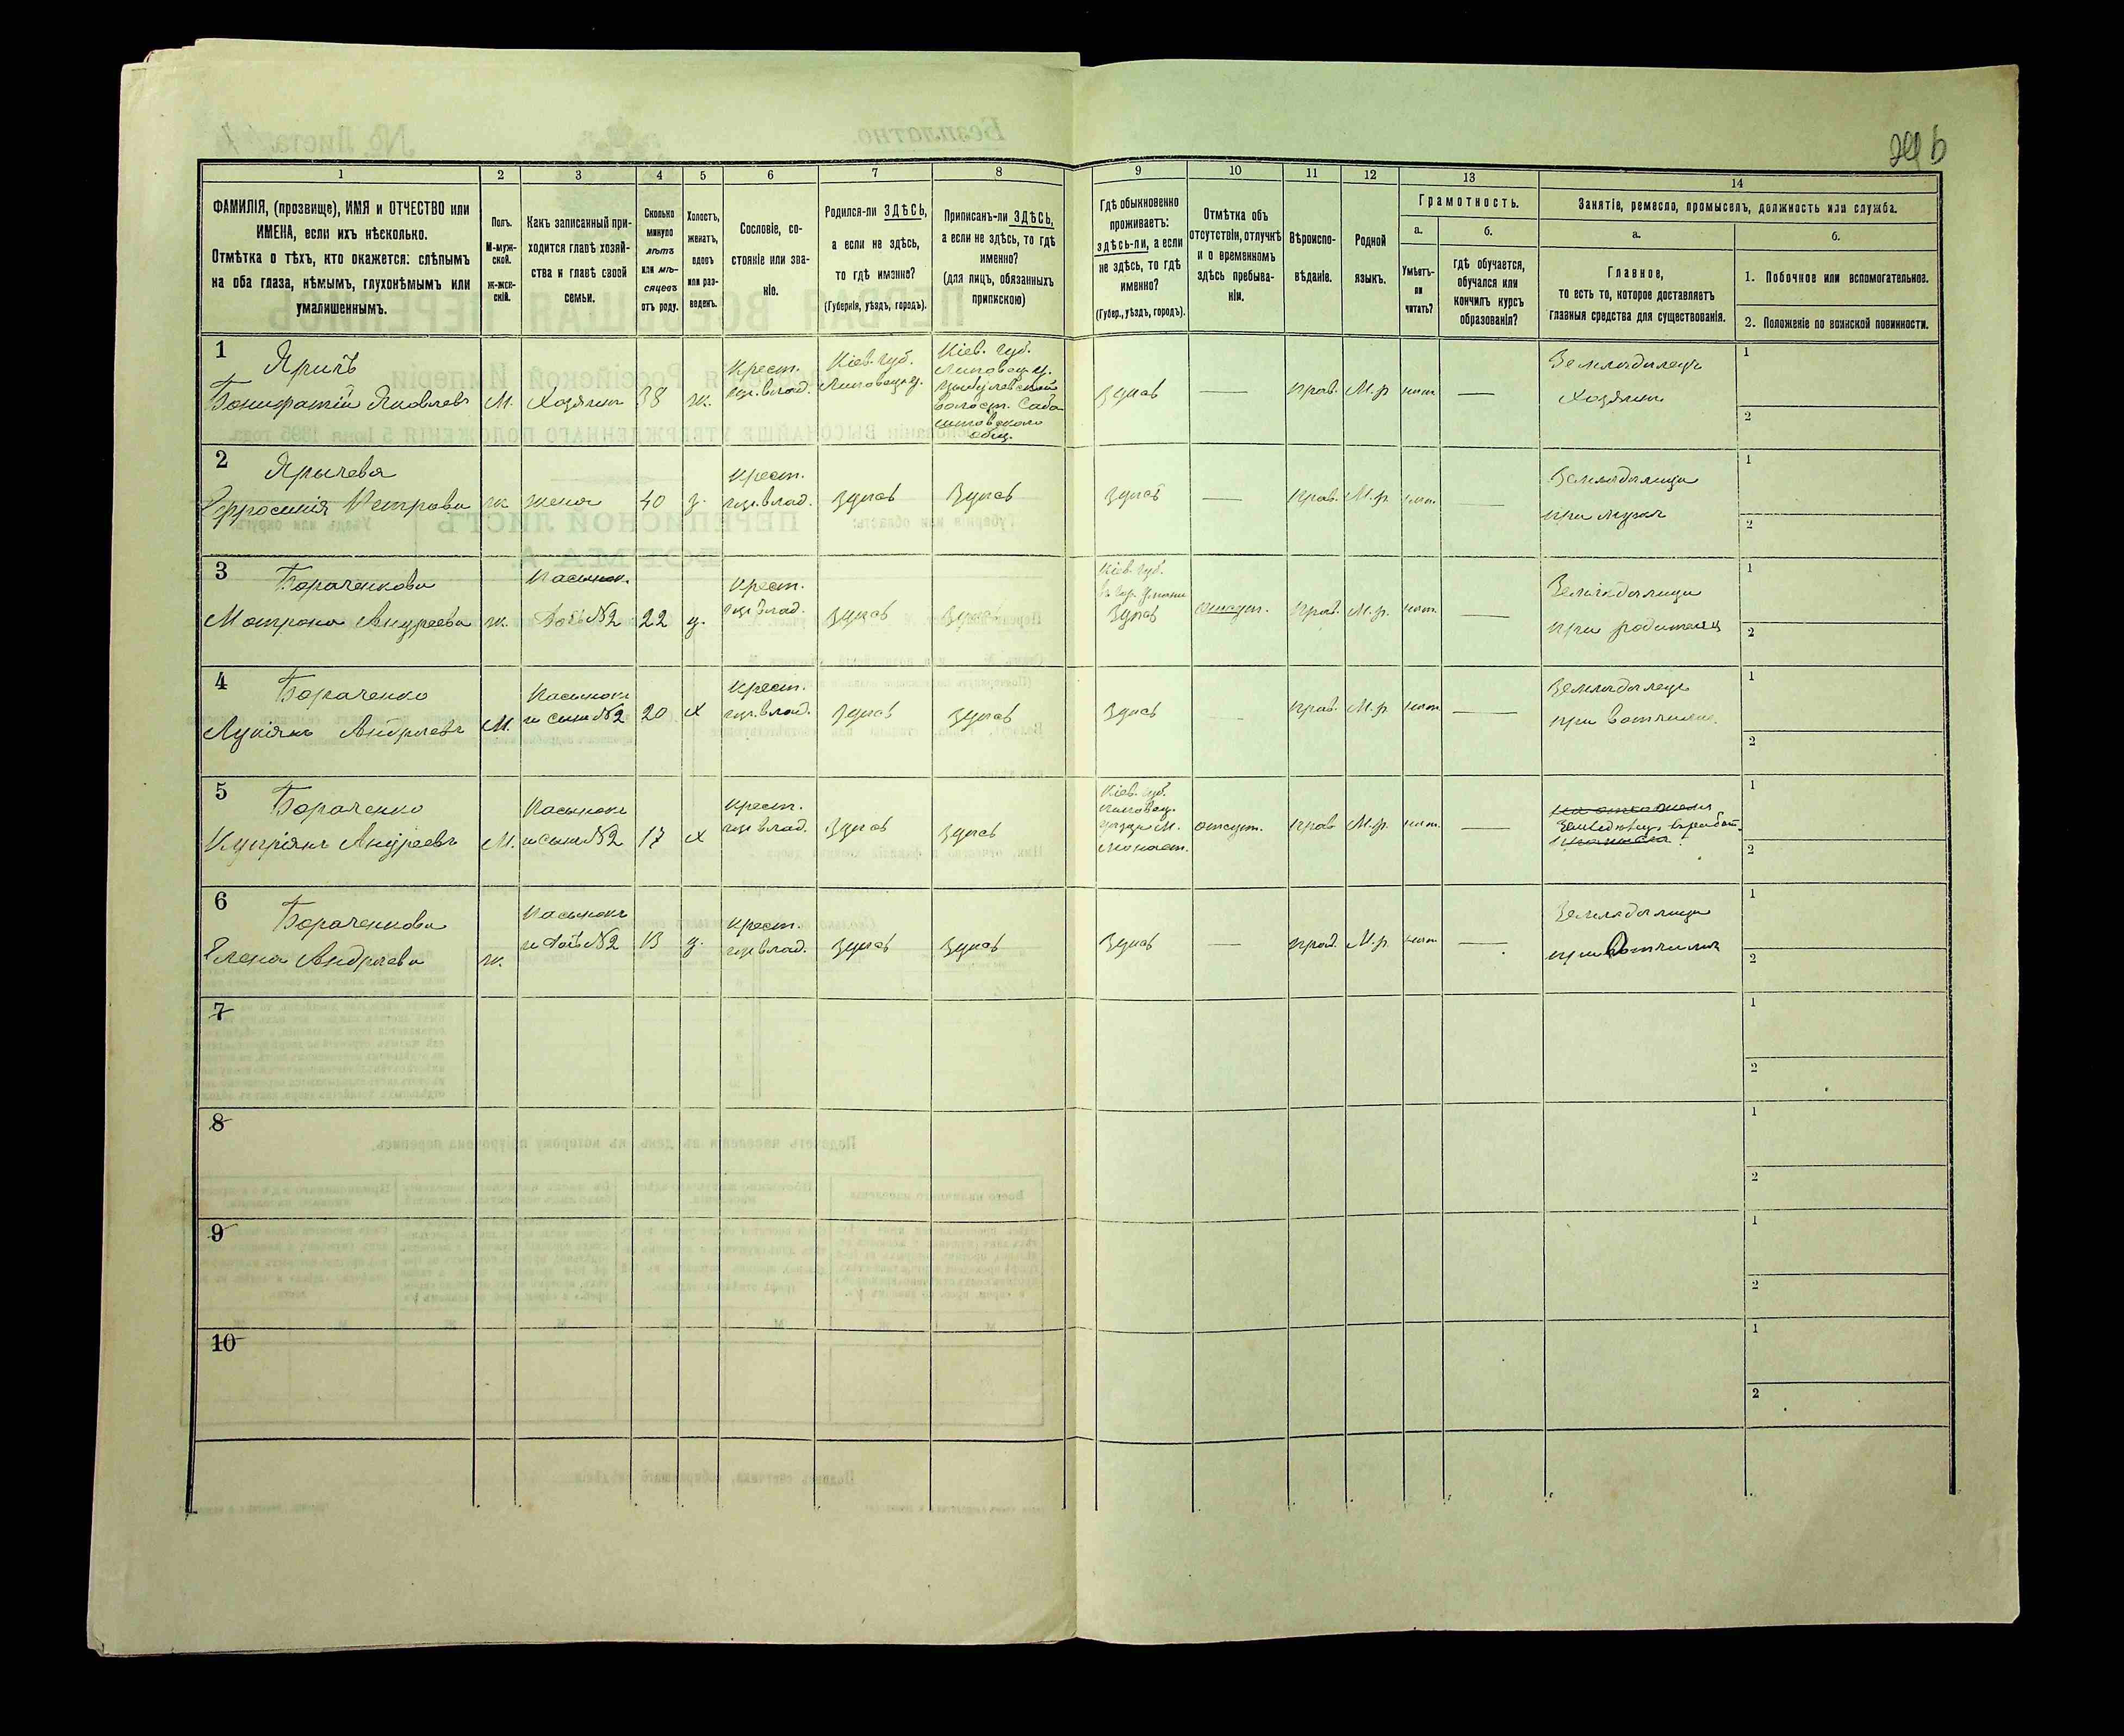 29 b
1
2
3
4
5
6
7
8
9
10
11
12
13
14
ФАМИЛІЯ, (прозвище), ИМЯ и ОТЧЕСТВО или
ИМЕНА, если ихъ нѣсколько.
Отмѣтка о тѣхъ, кто окажется: слѣпымъ
на оба глаза, нѣмымъ, глухонѣмымъ или
умалишеннымъ.
Полъ.
М-муж-
ской.
Ж-жен-
скій.
Какъ записанный при-
ходится главѣ хозяй-
ства и главѣ своей
семьи.
Сколько
минуло
лѣтъ
или мѣ-
сяцевъ
отъ роду.
Холостъ,
женатъ,
вдовъ
или раз-
веденъ.
Сословіе, со-
стояніе или зва-
ніе.
Родился-ли ЗДѢСЬ,
а если не здѣсь,
то гдѣ именно?
(Губернія, уѣздъ, городъ).
Приписанъ-ли ЗДѢСЬ,
а если не здѣсь, то гдѣ
именно?
(для лицъ, обязанныхъ
припискою)
Гдѣ обыкновенно
проживаетъ:
здѣсь-ли, а если
не здѣсь, то гдѣ
именно?
(Губер., уѣздъ, городъ).
Отмѣтка объ
отсутствіи, отлучкѣ
и о временномъ
здѣсь пребыва-
ніи.
Вѣроиспо-
вѣданіе.
Родной
языкъ.
Грамотность.
а.
Умѣетъ-
ли
читать?
б.
гдѣ обучается,
обучался или
кончилъ курсъ
образованія?
Занятіе, ремесло, промыселъ, должность или служба.
а.
Главное,
то есть то, которое доставляетъ
главныя средства для существованія.
б.
1. Побочное или вспомогательное.
2. Положеніе по воинской повинности.
1
Яричъ
Бонифатій Яковлевъ
М.
Хозяинъ
38
ж.
Крест.
гор. влад.
Кіев. губ.
Липовец. у.
Кіев. губ.
Липовец. у.
Цыбулевской
волост. Саба
шовскаго
общ.
Здѣсь
—
Прав.
М.р
нѣт
—
Земледѣлецъ
Хозяинъ
1
2
2
Яричева
Ефросинія Петрова
ж
жена
40
з.
Крест.
гор. влад.
Здѣсь
Здѣсь
Здѣсь
—
Прав.
М.р
нѣт.
—
Земледѣлица
при мужѣ
1
2
3
Бораченкова
Матрона Андреева
ж.
Пасынок.
дочь №2
22
д.
Крест.
гор. влад.
Здѣсь
Здѣсь
Кіев. губ.
въ гор. Умани
Здѣсь
отсут.
Прав.
М.р.
нѣт.
—
Земледѣлица
при родителяхъ
1
2
4
Бораченко
Лукіянъ Андреевъ
М.
Пасынокъ
и сынъ №2
20
х
Крест.
гор. влад.
Здѣсь
Здѣсь
Здѣсь
Прав.
М.р
нѣт
—
Земледѣлецъ
при вотчимѣ.
1
2
5
Бораченко
Купріянъ Андреевъ
М.
Пасынокъ
и сынъ №2
17
х
Крест.
гор. влад.
Здѣсь
Здѣсь
Кіев. губ.
Липовец.
уѣзда М.
Монаст.
отсут.
Прав
М.р.
нѣт
—
1
2
6
Бораченкова
Елена Андреева
ж.
Пасынокъ
и дочь №2
13
д.
Крест.
гор. влад.
Здѣсь
Здѣсь
Здѣсь
—
Прав.
М.р.
нѣт
—
Земледѣлица
при вотчимѣ
1
2
7
1
2
8
1
2
9
1
2
10
1
2